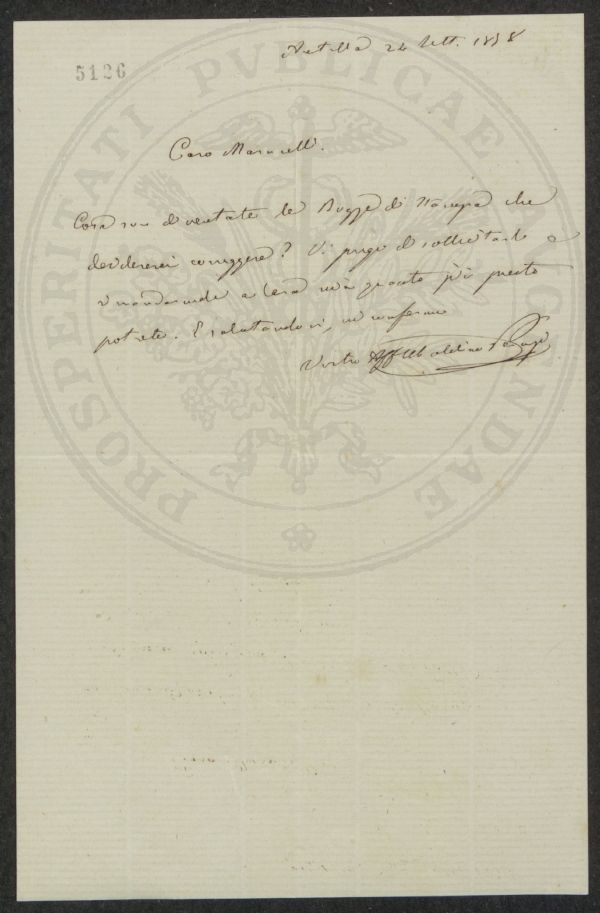 5126
Antella 24 Sett. 1858
Caro Martelli.
Cosa son diventate le Bozze di Stampa che
desidererei correggere? Vi prego di sollecitarle e
rimandarmele a casa mia quanto più presto
potrete. E salutandovi, mi confermo
Vostro Aff Ubaldino Peruzzi
PROSPERITATI PVBLICAE AVGENDAE